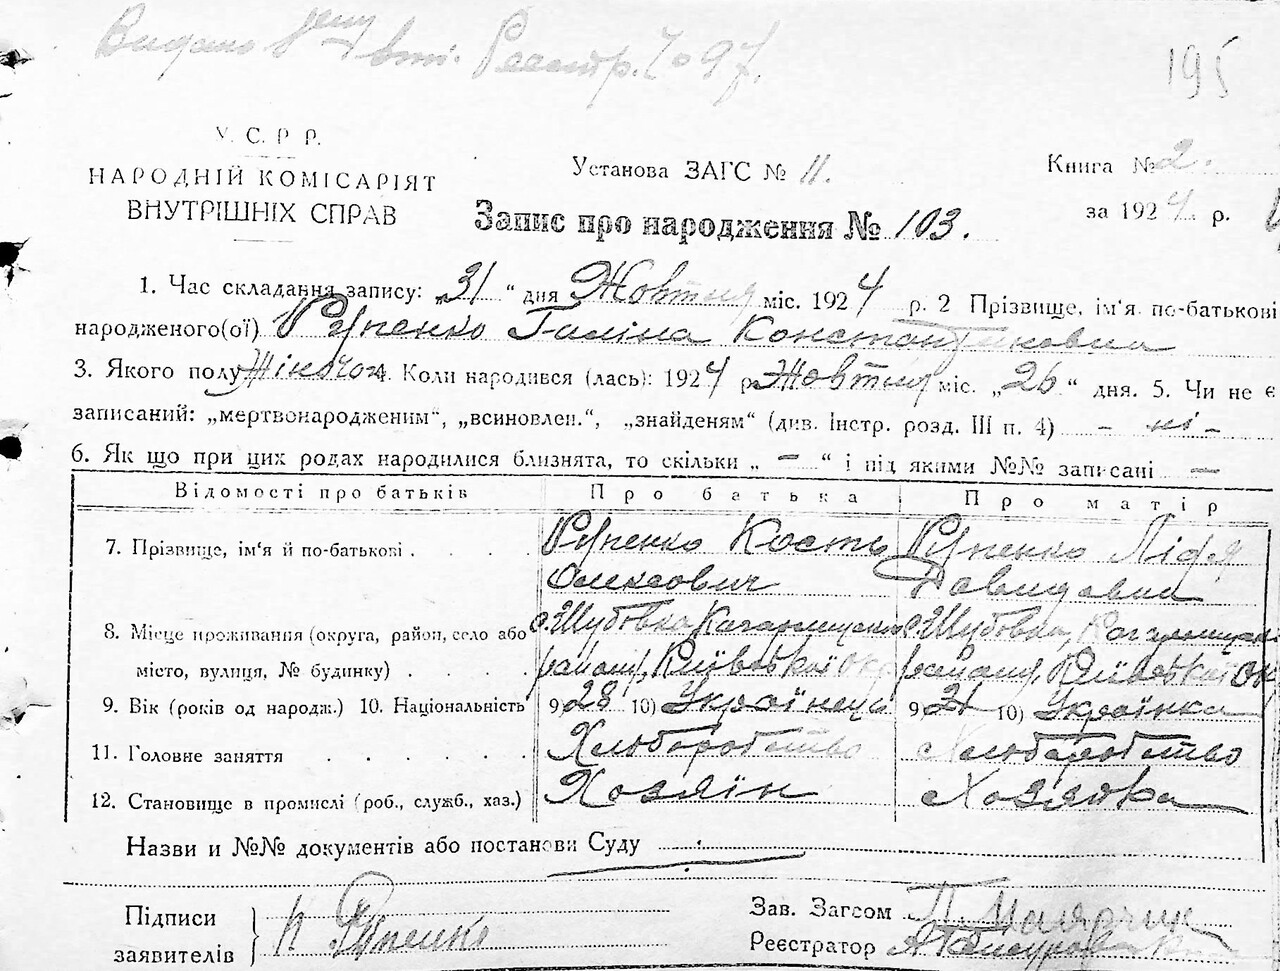 Видано вип. Реєстр. № 97.
195
У. С. Р. Р.
НАРОДНІЙ КОМІСАРІЯТ
ВНУТРІШНІХ СПРАВ
Установа ЗАГС № 11.
Книга № 2.
за 1924 р.
Запис про народження № 103.
1. Час складання запису: „31" дня Жовтня міс. 1924 р. 2 Прізвище, ім'я по-батькові
народженого(ої) Рупенко Галіна Константиновна
3. Якого полу Жіночого 4. Коли народився (лась): 1924 р. Жовтня міс. „26" дня. 5. Чи не є
записаний: „мертвонародженим", „всиновлен.", „знайденям" (див. інстр. розд. III п. 4) – ні –
6. Як що при цих родах народилися близнята, то скільки „ – " і під якими №№ записані –
Відомості про батьків Про батька Про матір
7. Прізвище, ім'я й по-батькові Рупенко Кость Рупенко Лідія
Олексович Давидовна
8. Місце проживання (округа, район, село або с. Шубовка Кагарлицьк с. Шубовка, Кагарлицьк
місто, вулиця, № будинку) району, Київської ок району, Київської ок
9. Вік (років од народж.) 10. Національність 9) 28 10) Українець 9) 21 10) Українка
11. Головне заняття Хліборобство Хліборобство
12. Становище в промислі (роб., служб., хаз.) Хозяїн Хозяйка
Назви и №№ документів або постанови Суду
Підписи
заявителів
К. Рупенко
Зав. Загсом
Реєстратор